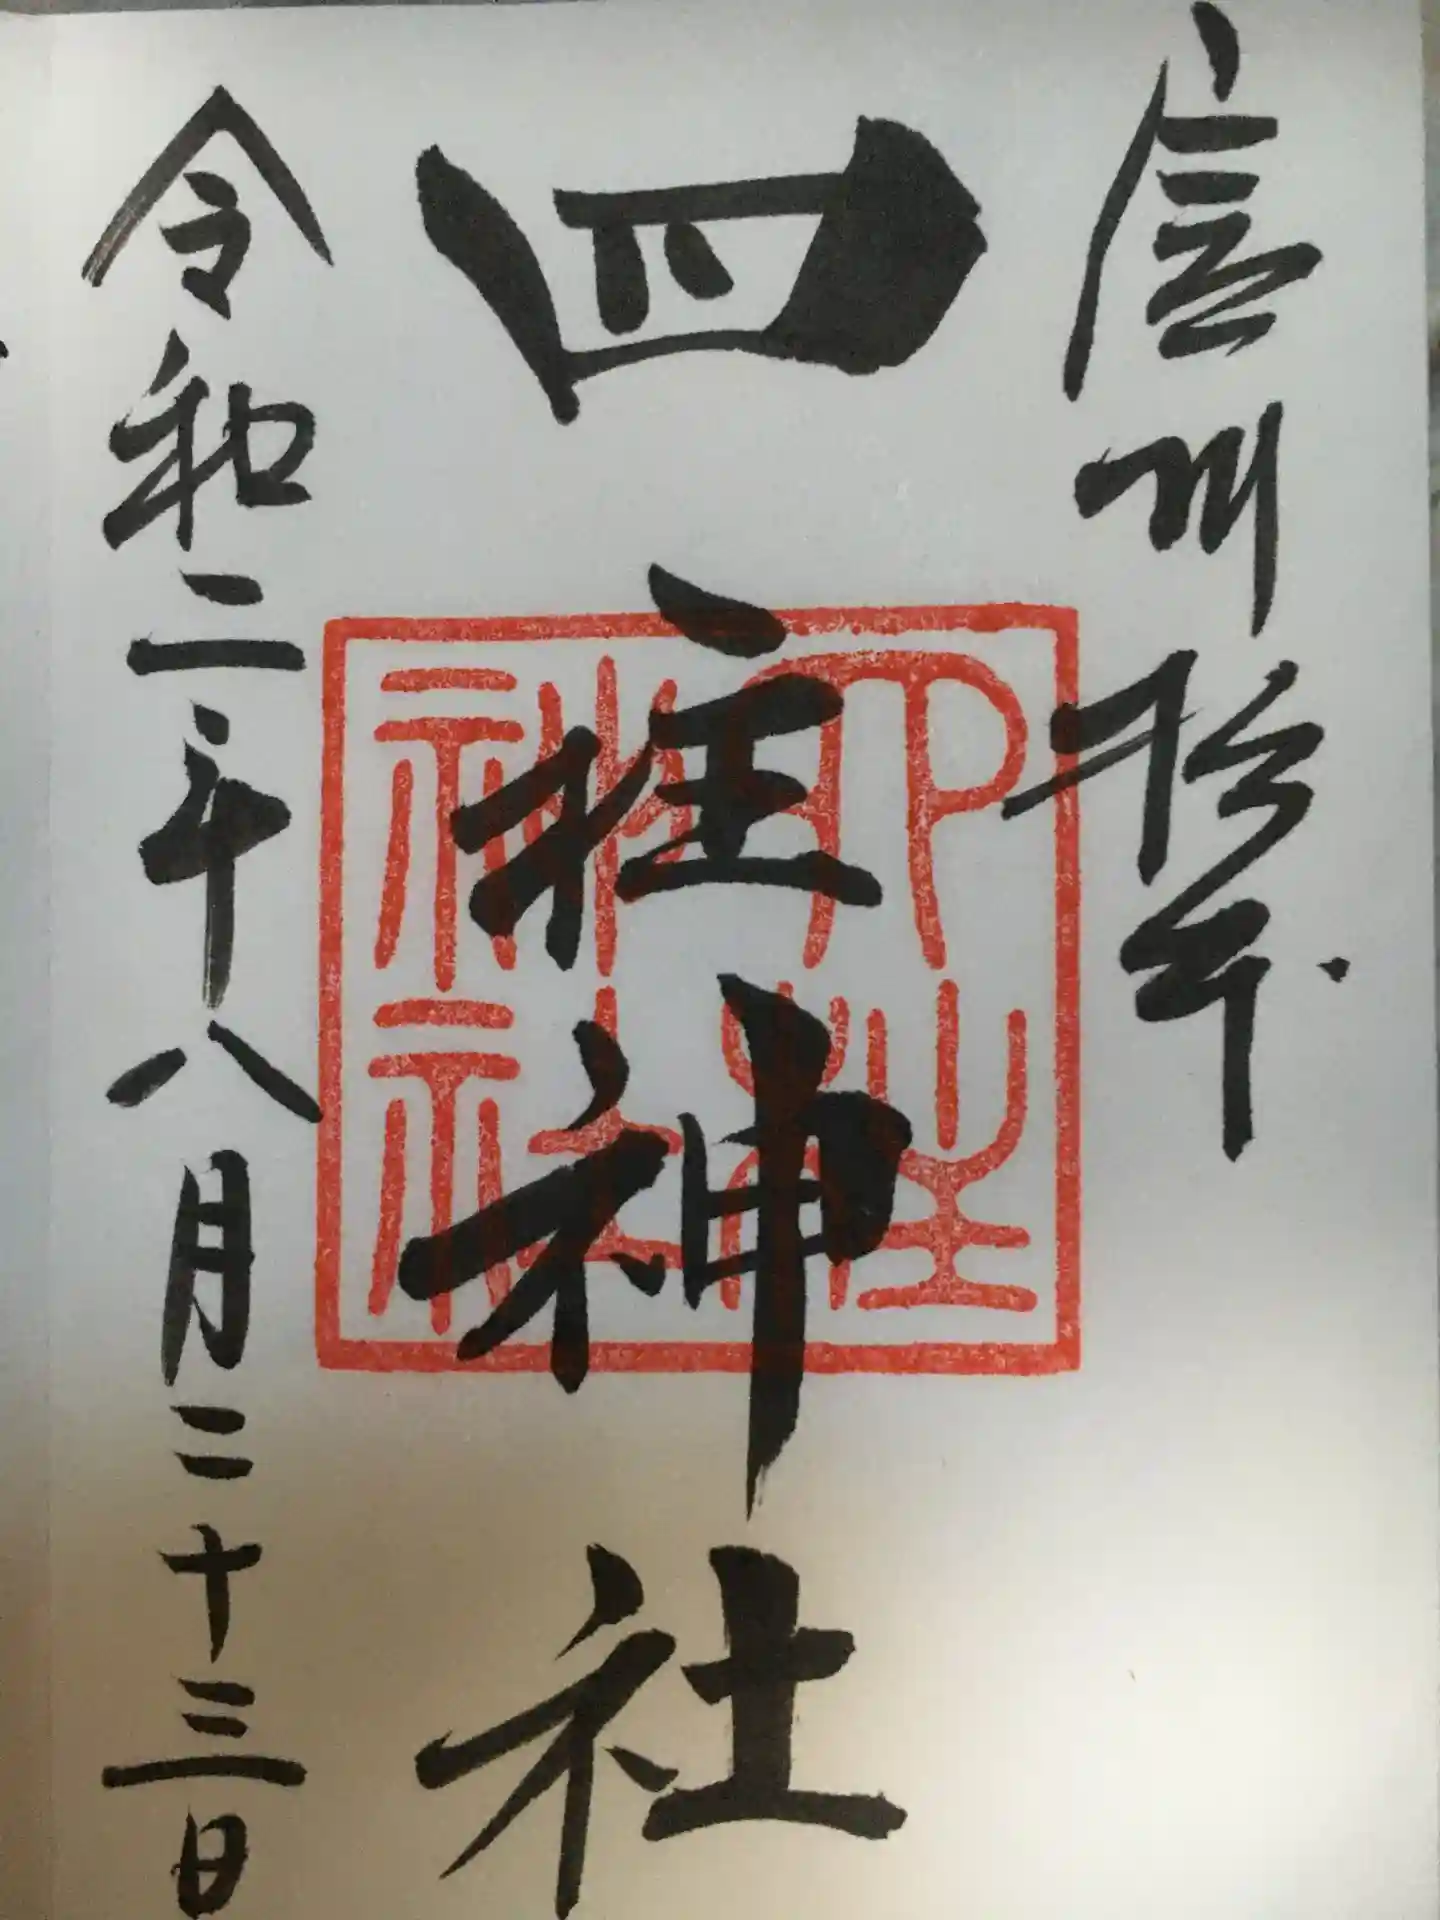 信州松本
四柱神社
四柱神社
令和二年八月二十三日